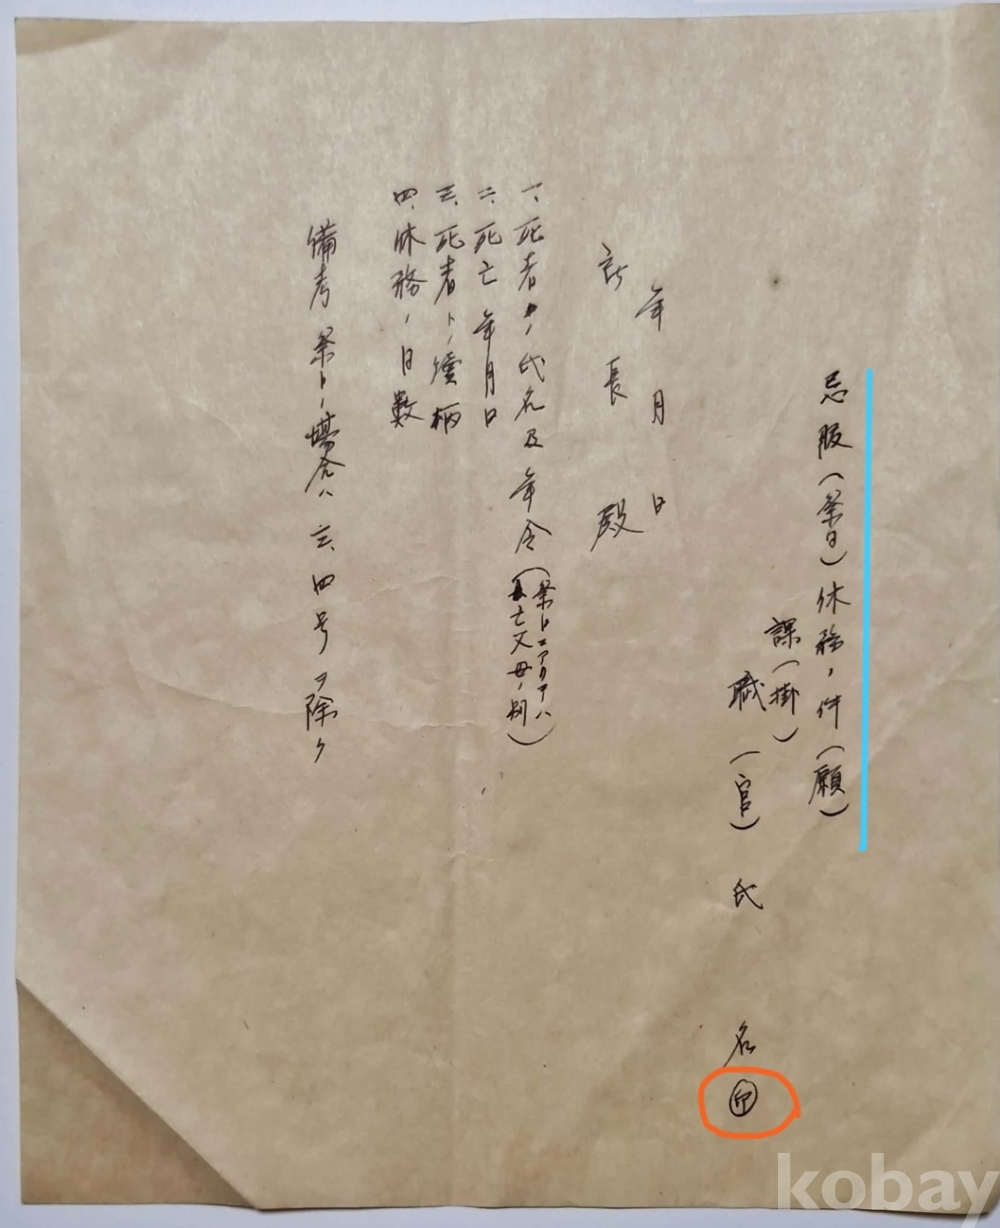 忌服(祭日)休務ノ件(願)
課(掛)
職(官)氏名㊞
年月日
所長殿
一、死者ノ氏名及年令(祭日ニアリテハ
亡父母ノ例)
二、死亡年月日
三、死者トノ續柄
四、休務ノ日數
備考 祭日ノ場合ハ三、四号ヲ除ク
kobay